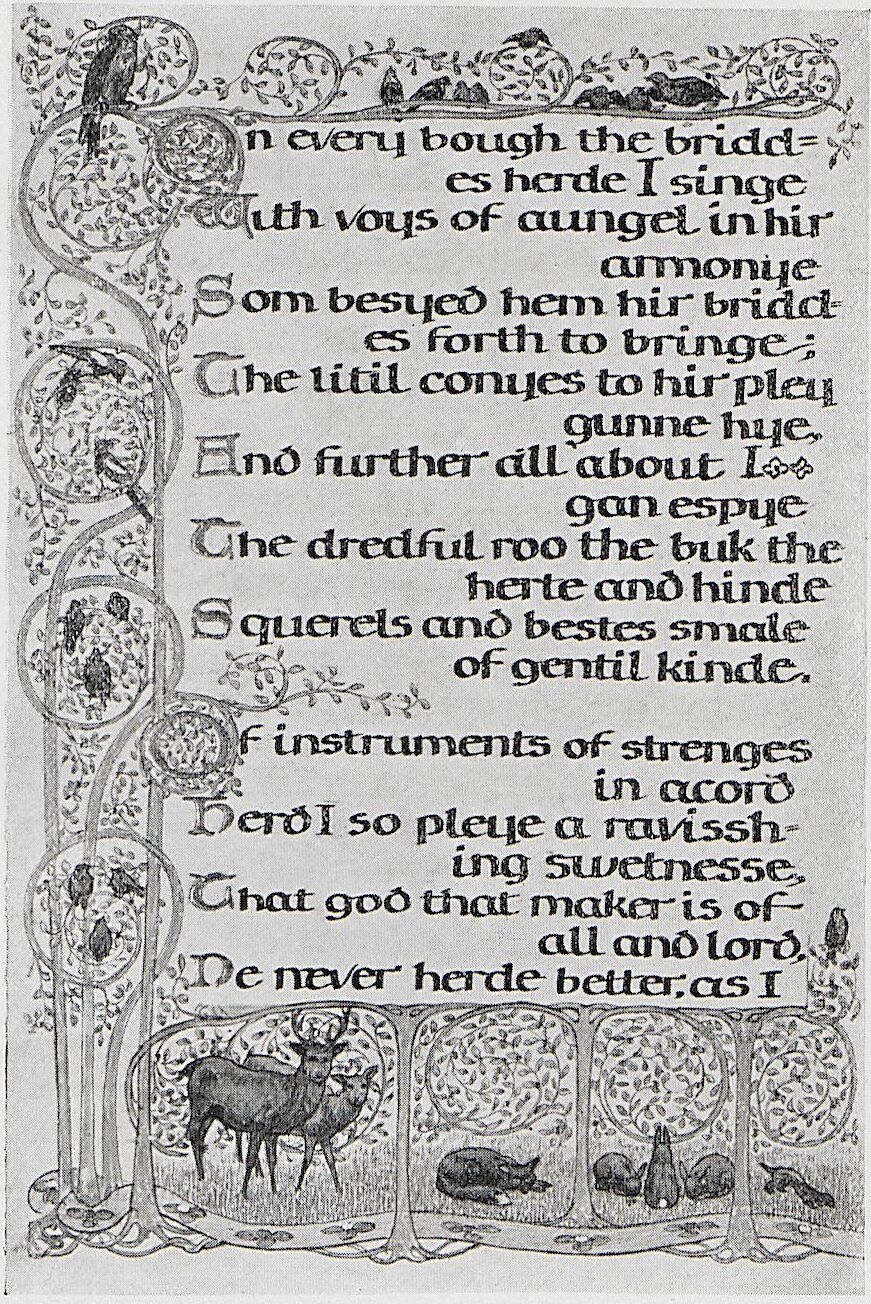 On every bough the bridd=
es herde I singe
With voys of aungel in hir
armonye
Som besyed hem hir bridd=
es forth to bringe;
The litil conyes to hir pley
gunne hye,
And further all about I
gan espye
The dredful roo the buk the
herte and hinde
Squerels and bestes smale
of gentil kinde.
Of instruments of strenges
in acord
Herd I so pleye a ravissh=
ing swetnesse,
That god that maker is of
all and lord,
Ne never herde better, as I